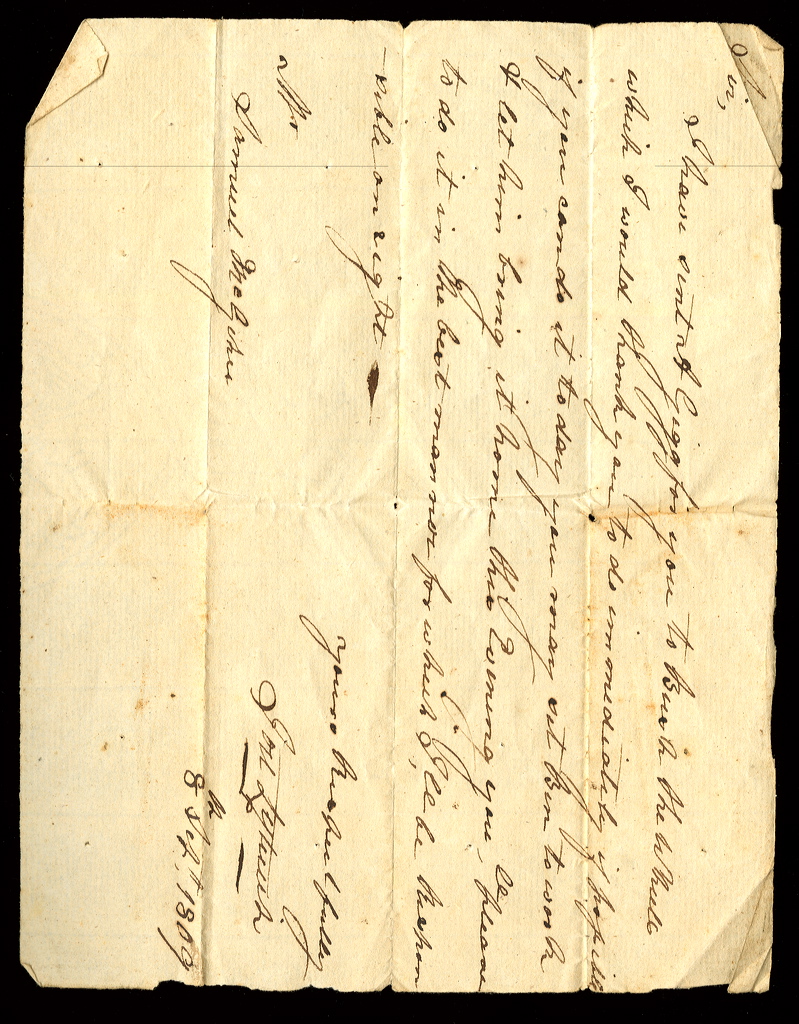 Sir,
I have sent a Gigg for you to Bush the Wheel
which I would thank you to do immediately if possible
if you can do it to day you may set Ben to work
& let him bring it home this Evening you,ll please
to do it in the best manner for which I,ll be respon
-sible on sight
yours Respectfully
Mr
Samuel McGehee
8th Sept. 1809